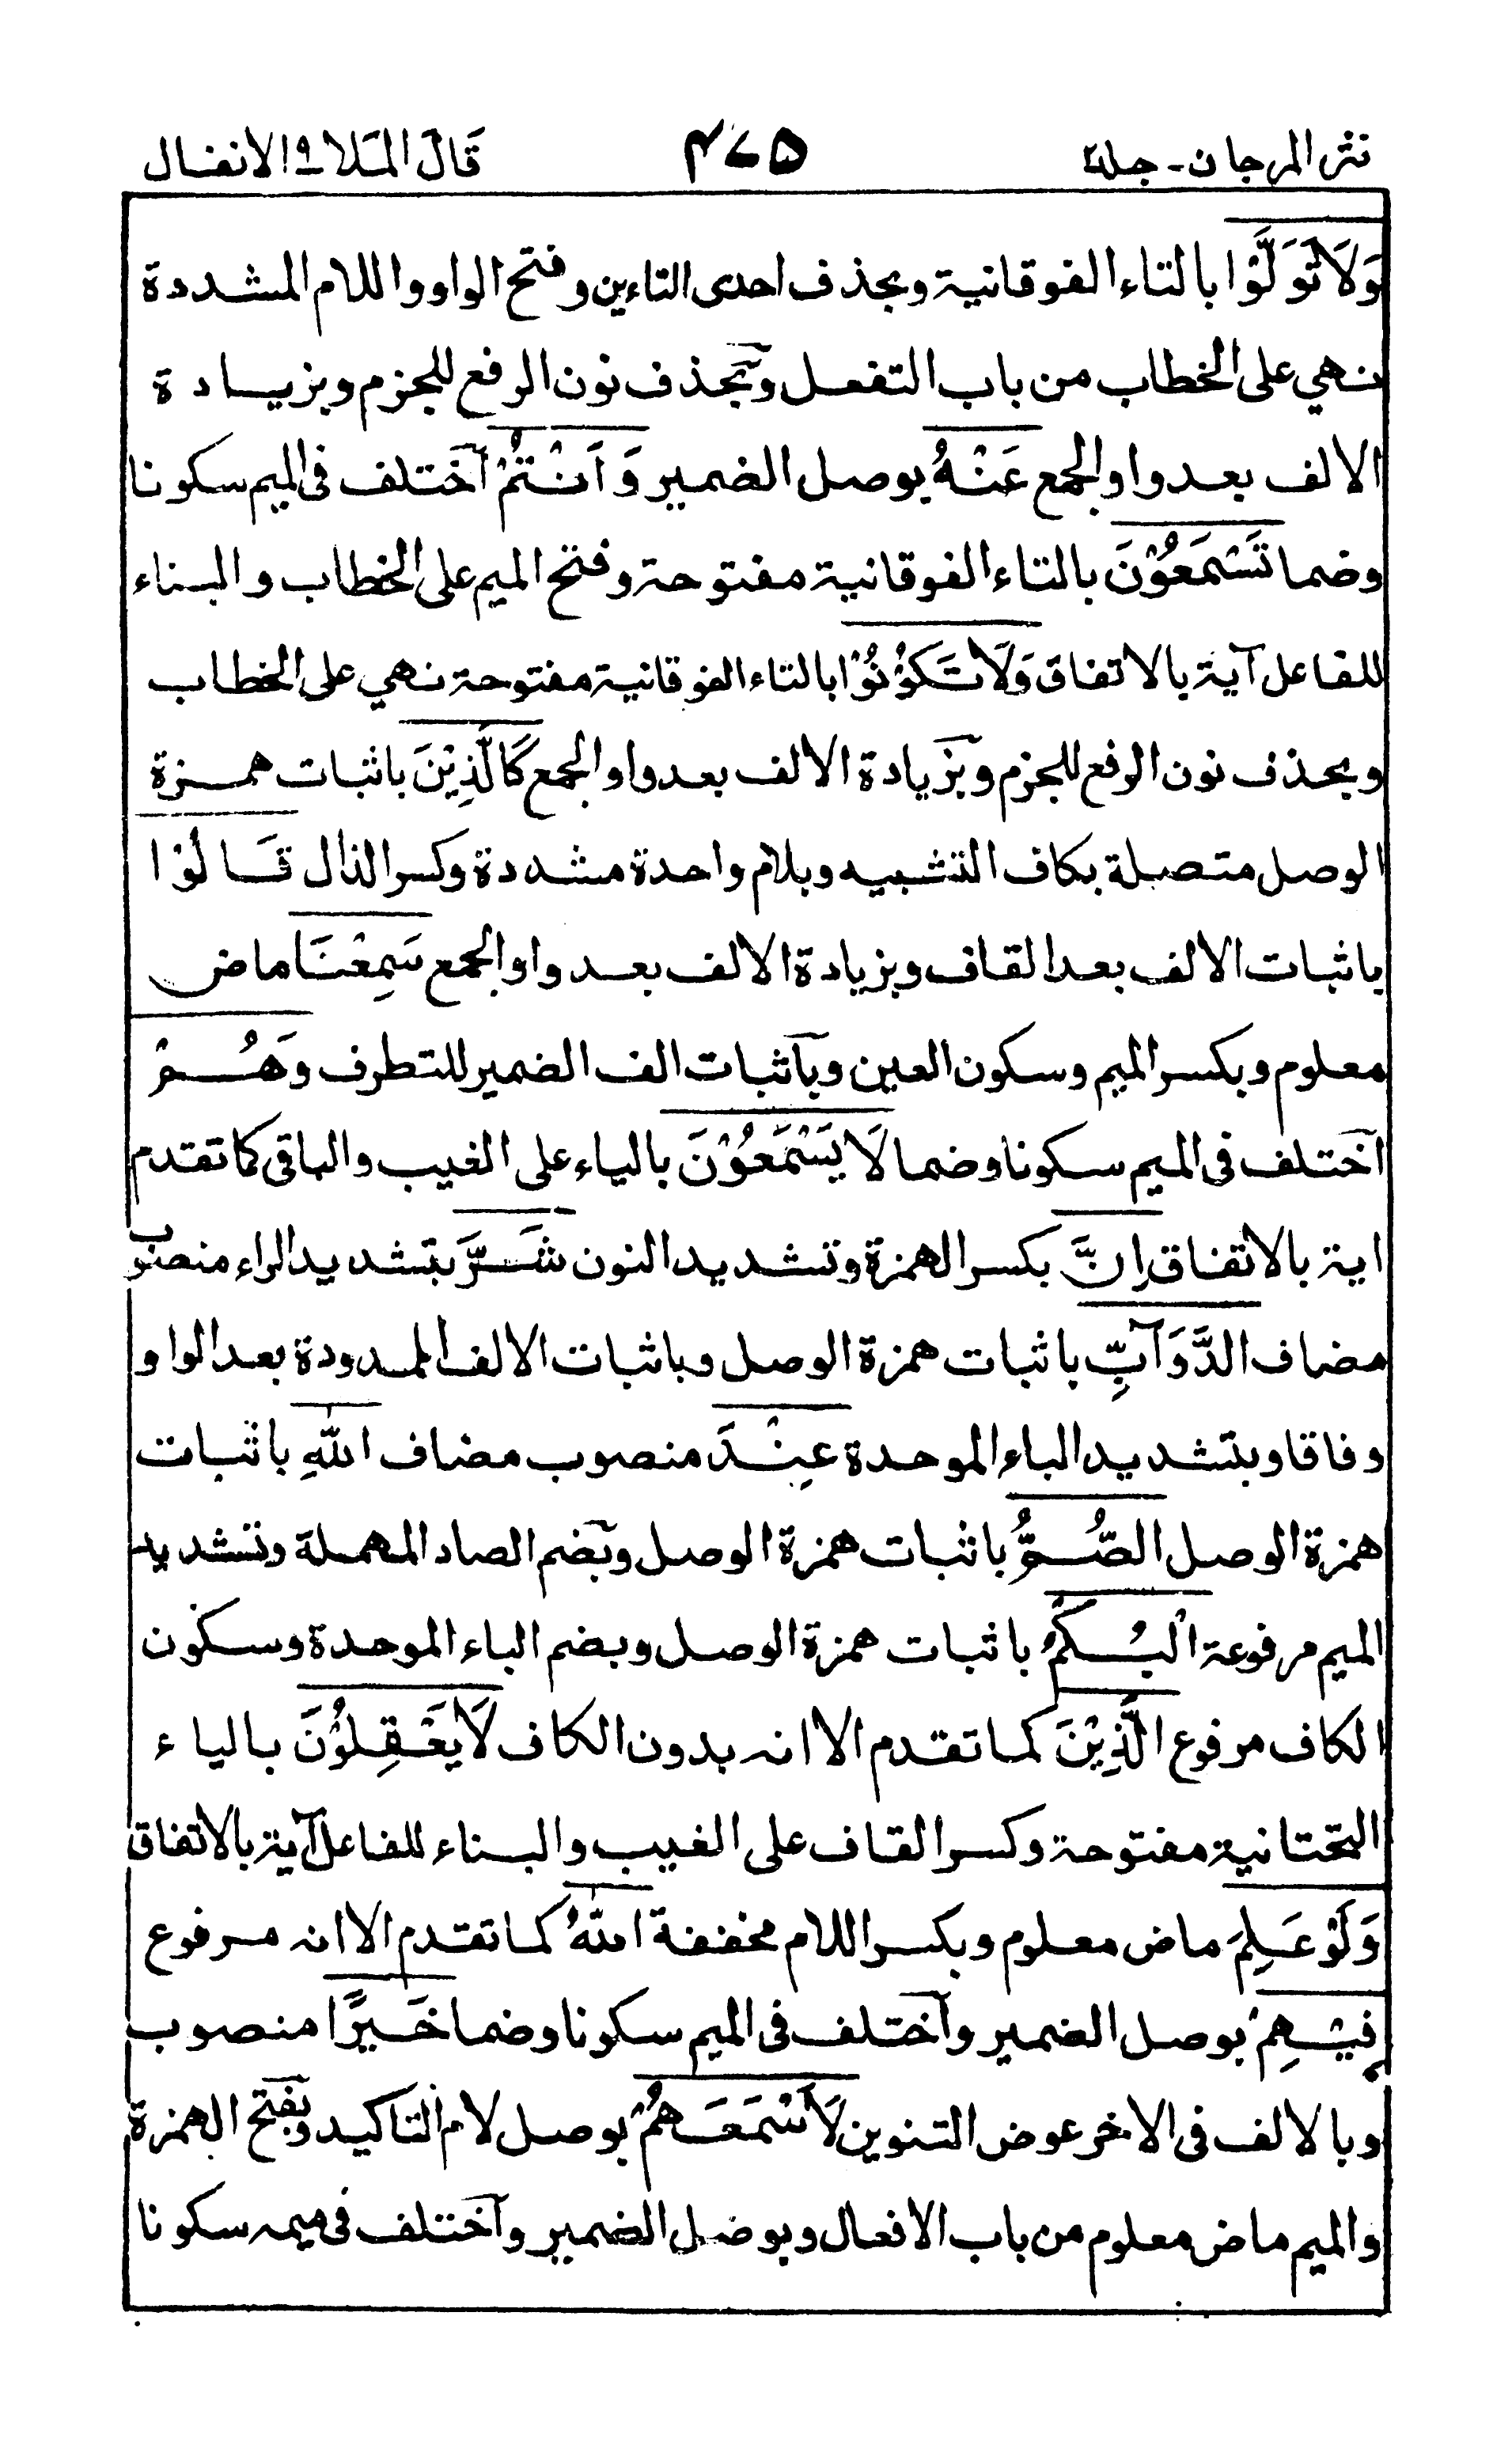 نثر المرجان - جلد٢ ٤٧٥ قَالَ الْمَلَا ٩ الانفال
وَلَا تَوَلَّوْا بالتاء الفوقانية وبحذف احدى التاءين وفتح الواو واللام المشددة
نهي على الخطاب من باب التفعل وبحذف نون الرفع للجزم وبزيادة
الالف بعد واو الجمع عَنْهُ بوصل الضمير وَاَنْتُمْ اختلف فى الميم سكونا
وضما تَسْمَعُوْنَ بالتاء الفوقانية مفتوحة وفتح الميم على الخطاب والبناء
للفاعل آية بالاتفاق وَلَا تَكُوْنُوْا بالتاء الفوقانية مفتوحة نهي على الخطاب
وبحذف نون الرفع للجزم وبزيادة الالف بعد واو الجمع كَالَّذِيْنَ باثبات همزة
الوصل متصلة بكاف التشبيه وبلام واحدة مشددة وكسر الذال قَالُوْا
باثبات الالف بعد القاف وبزيادة الالف بعد واو الجمع سَمِعْنَا ماض
معلوم وبكسر الميم وسكون العين وباثبات الف الضمير للتطرف وَهُمْ
اختلف فى الميم سكونا وضما لَا يَسْمَعُوْنَ بالياء على الغيب والباقى كما تقدم
اية بالاتفاق اِنَّ بكسر الهمزة وتشديد النون شَرَّ بتشديد الراء منصوب
مضاف الدَّوَآبِّ باثبات همزة الوصل وباثبات الالف الممدودة بعد الواو
وفاقا وبتشديد الباء الموحدة عِنْدَ منصوب مضاف اللّٰهِ باثبات
همزة الوصل الصُّمُّ باثبات همزة الوصل وبضم الصاد المهملة وتشديد
الميم مرفوعة الْبُكْمُ باثبات همزة الوصل وبضم الباء الموحدة وسكون
الكاف مرفوع الَّذِيْنَ كما تقدم الا انه بدون الكاف لَا يَعْقِلُوْنَ بالياء
التحتانية مفتوحة وكسر القاف على الغيب والبناء للفاعل آية بالاتفاق
وَلَوْ عَلِمَ ماض معلوم وبكسر اللام مخففة اللّٰهُ كما تقدم الا انه مرفوع
فِيْهِمْ بوصل الضمير واختلف فى الميم سكونا وضما خَيْرًا منصوب
وبالالف فى الاخر عوض التنوين لَاَسْمَعَهُمْ بوصل لام التاكيد وبفتح الهمزة
والميم ماض معلوم من باب الافعال وبوصل الضمير واختلف فى ميمه سكونا